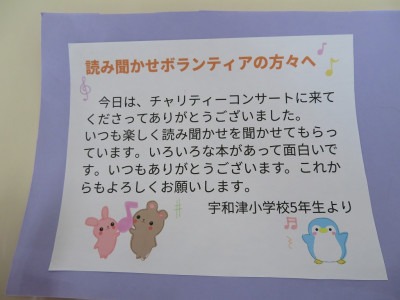 読み聞かせボランティアの方々へ
今日は、チャリティーコンサートに来て
くださってありがとうございました。
いつも楽しく読み聞かせを聞かせてもらっ
ています。いろいろな本があって面白いで
す。いつもありがとうございます。これか
らもよろしくお願いします。
宇和津小学校5年生より